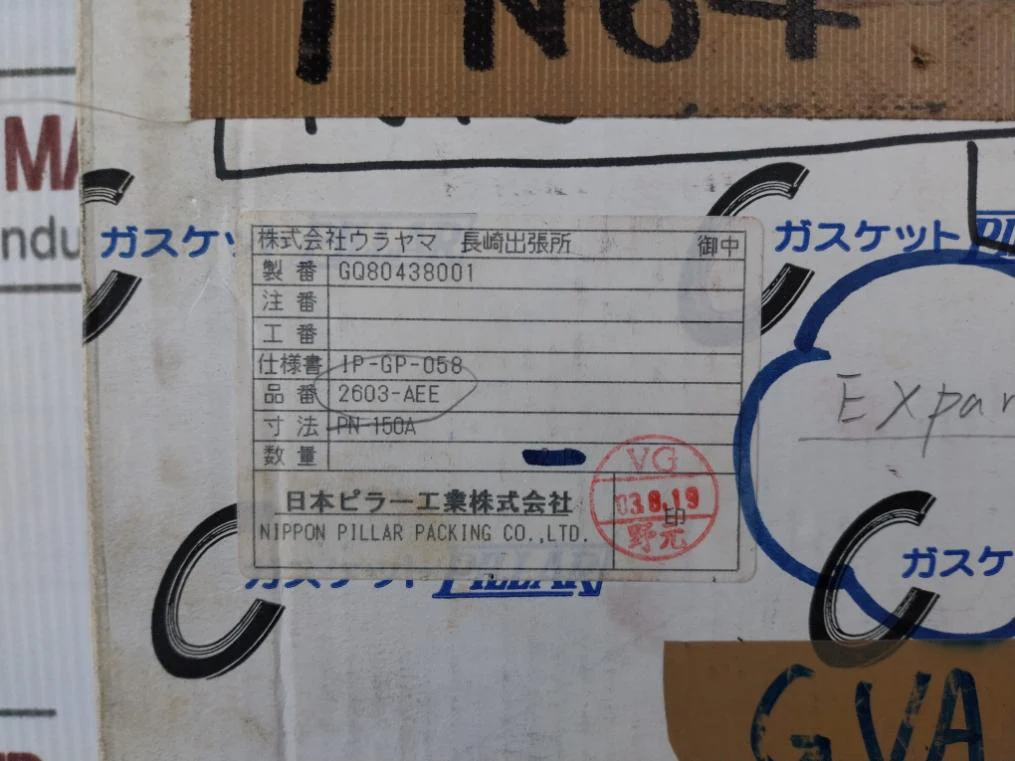 PN64
MA
ndu
ガスケッ
ガスケット
株式会社ウラヤマ 長崎出張所 御中
製番 GQ80438001
注番
工番
仕様書 IP-GP-058
品番 2603-AEE
寸法 PN 150A
数量
日本ピラー工業株式会社
NIPPON PILLAR PACKING CO.,LTD.
印
VG
03.8.19
野元
Expan
ガスケット PILLAR
ガスケ
GVA